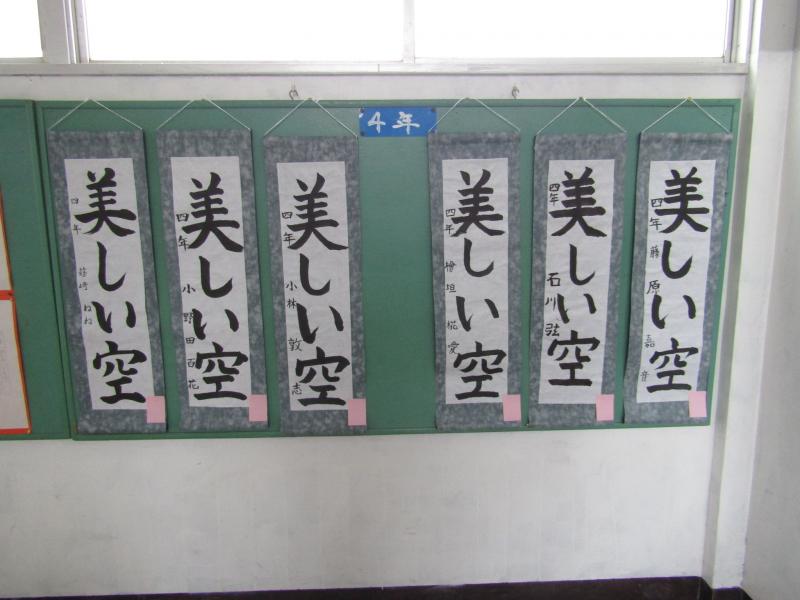 4年
美しい空
四年
美しい空
四年 小野田百花
美しい空
四年 小林敦志
美しい空
四年 檜垣椛愛
美しい空
四年 石川
美しい空
四年 藤原嘉音